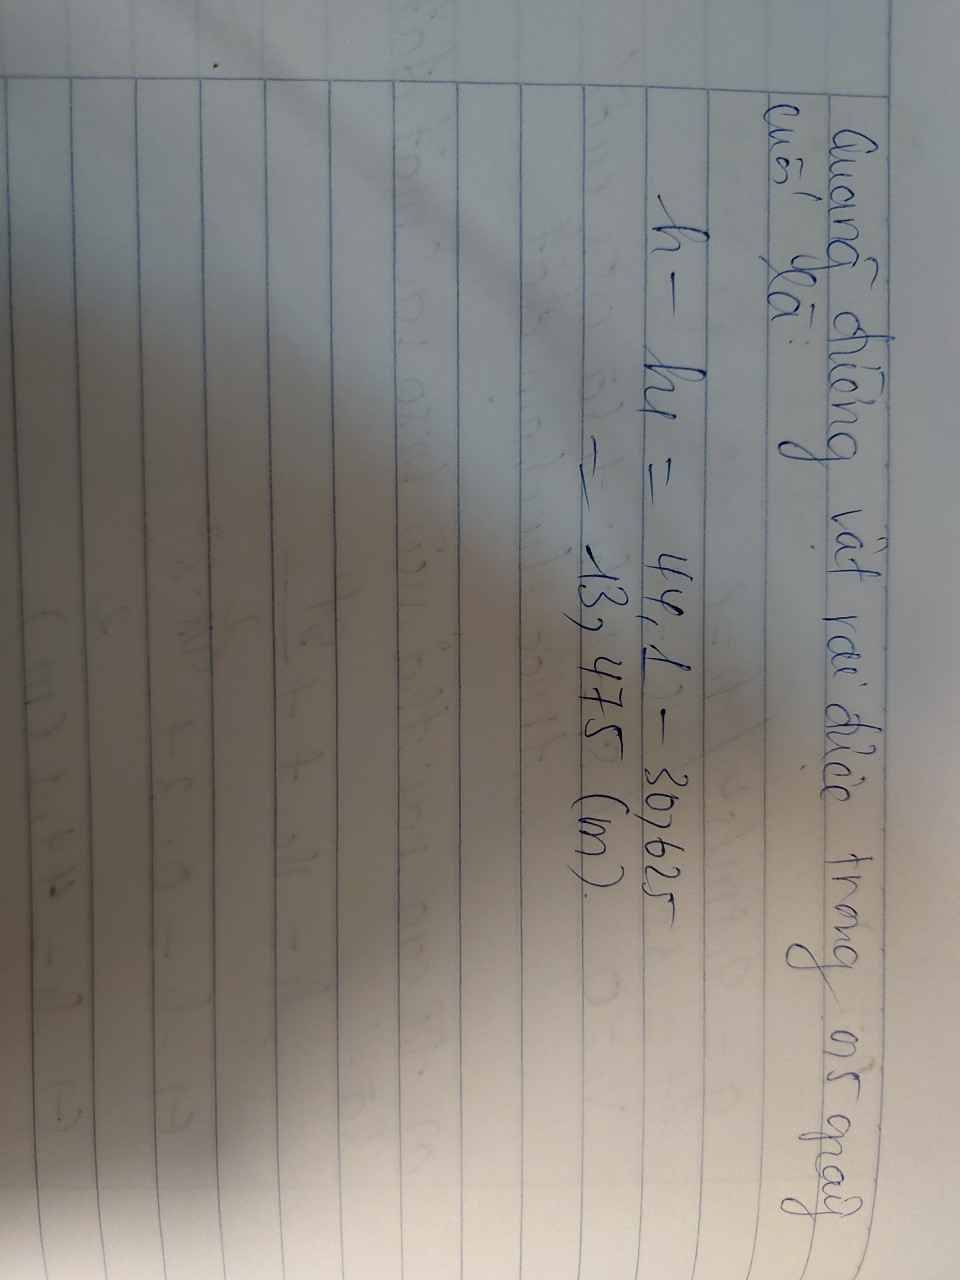 Quãng đường vật rơi được trong 0,5 giây
cuối là:
h - h₁ = 44,1 - 30,625
= 13,475 (m).